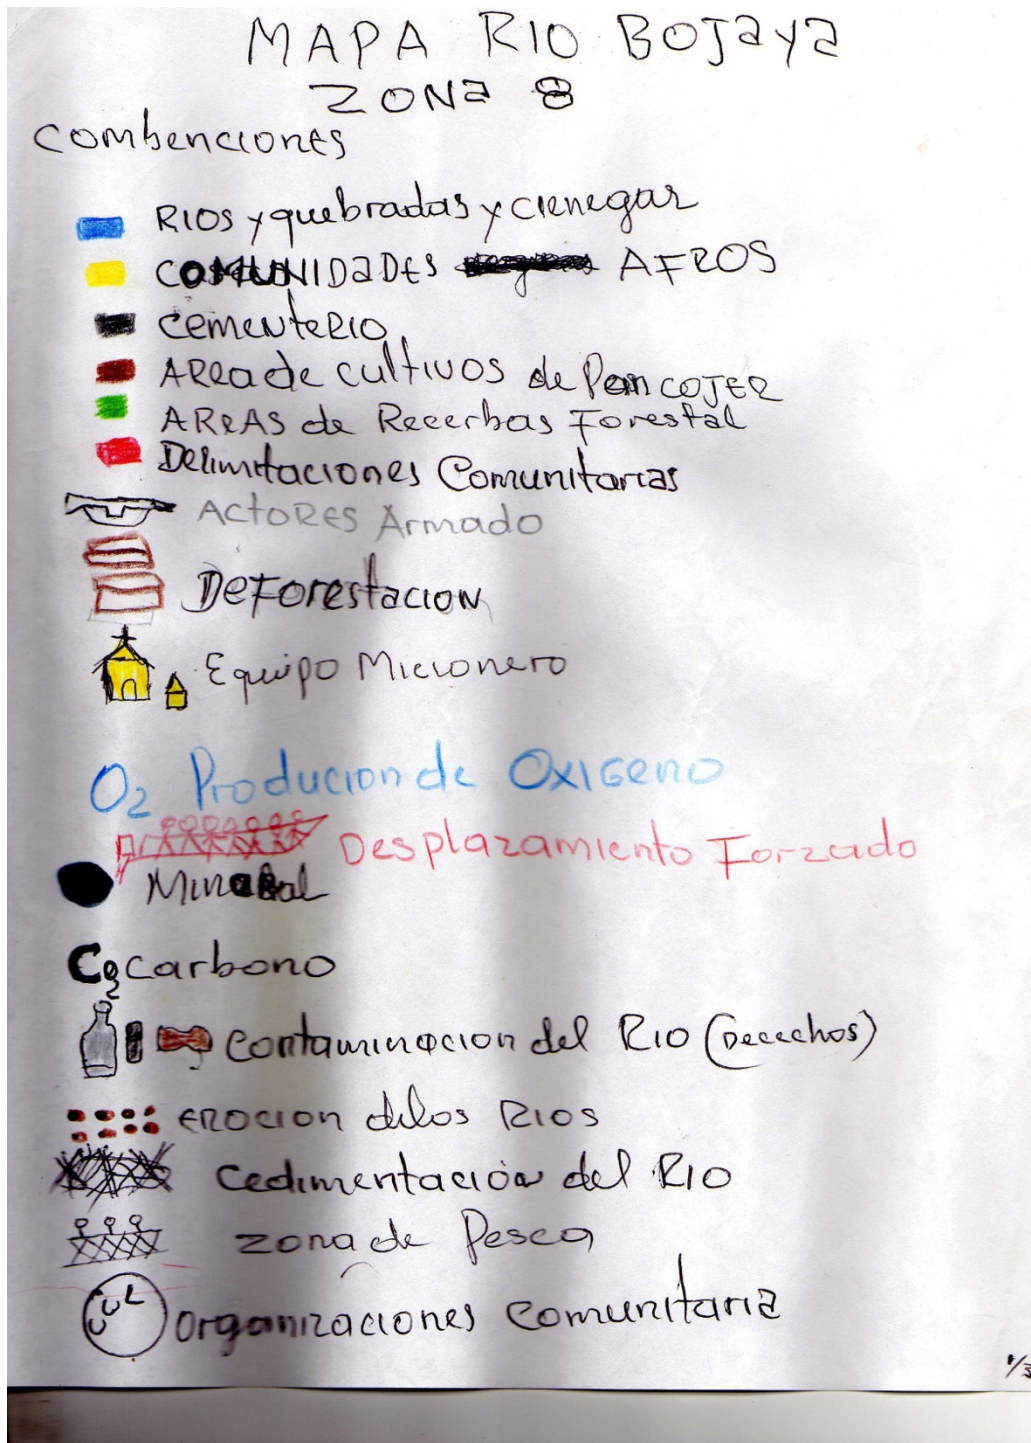 MAPA RIO BOJaya
ZONa 8
combenciones
RIOS y quebradas y cienegas
COMUNIDaDES AFROS
cementeRIO
ARea de cultivos de Pan COJER
AREAS de Recerbas Forestal
Delimitaciones Comunitarias
ActoRes Armado
DeForestacion
Equipo Micionero
O2 Producion de OxIGeno
Desplazamiento Forzado
Mineral
Co Carbono
contaminacion del RIO (Decechos)
EROCION delos RIOS
cedimentación del RIO
zona de Pesca
CUL organizaciones comunitaria
1/3